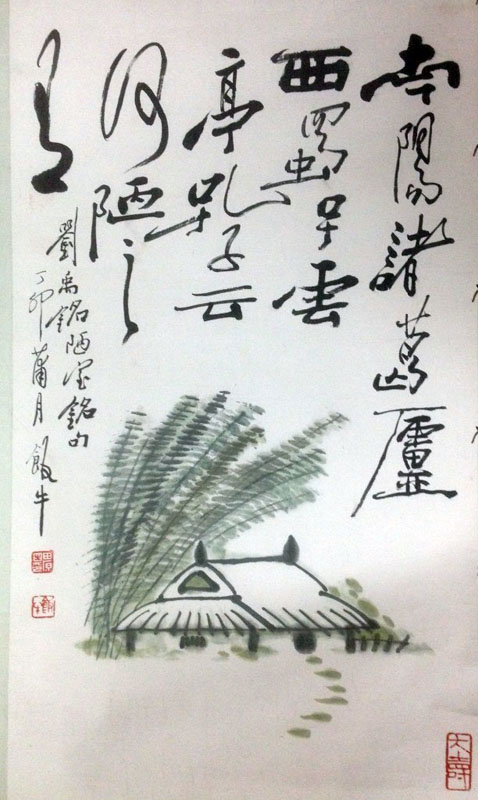 南陽諸葛廬
西蜀子雲
亭孔子云
何陋之
有
劉禹錫陋室銘句
丁卯蒲月飯牛
大壽